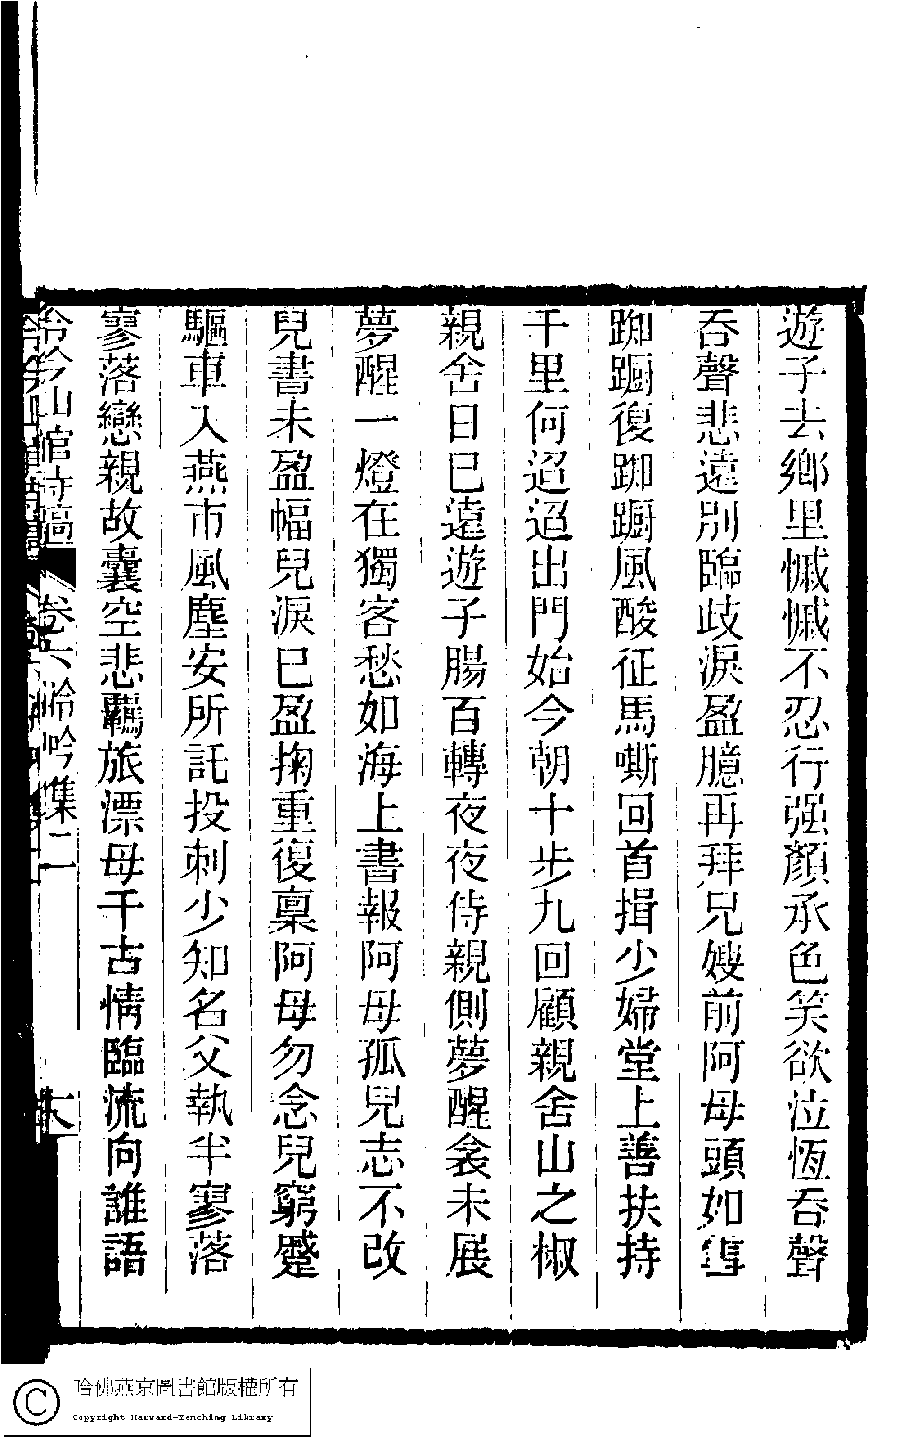 遊子去鄉里慽慽不忍行强顏承色笑欲泣恆吞聲
吞聲悲遠別臨歧淚盈臆再拜兄嫂前阿母頭如雪
踟躕復踟躕風酸征馬嘶回首揖少婦堂上善扶持
千里何迢迢出門始今朝十步九回顧親舍山之椒
親舍日已遠遊子腸百轉夜夜侍親側夢醒衾未展
夢醒一燈在獨客愁如海上書報阿母孤兒志不改
兒書未盈幅兒淚已盈掬重復稟阿母勿念兒窮蹙
驅車入燕市風塵安所託投刺少知名父執半寥落
寥落戀親故囊空悲羈旅漂母千古情臨流向誰語
泠泠山館詩稿 卷六泠吟集二
哈佛燕京圖書館版權所有
Copyright Harvard-Yenching Library